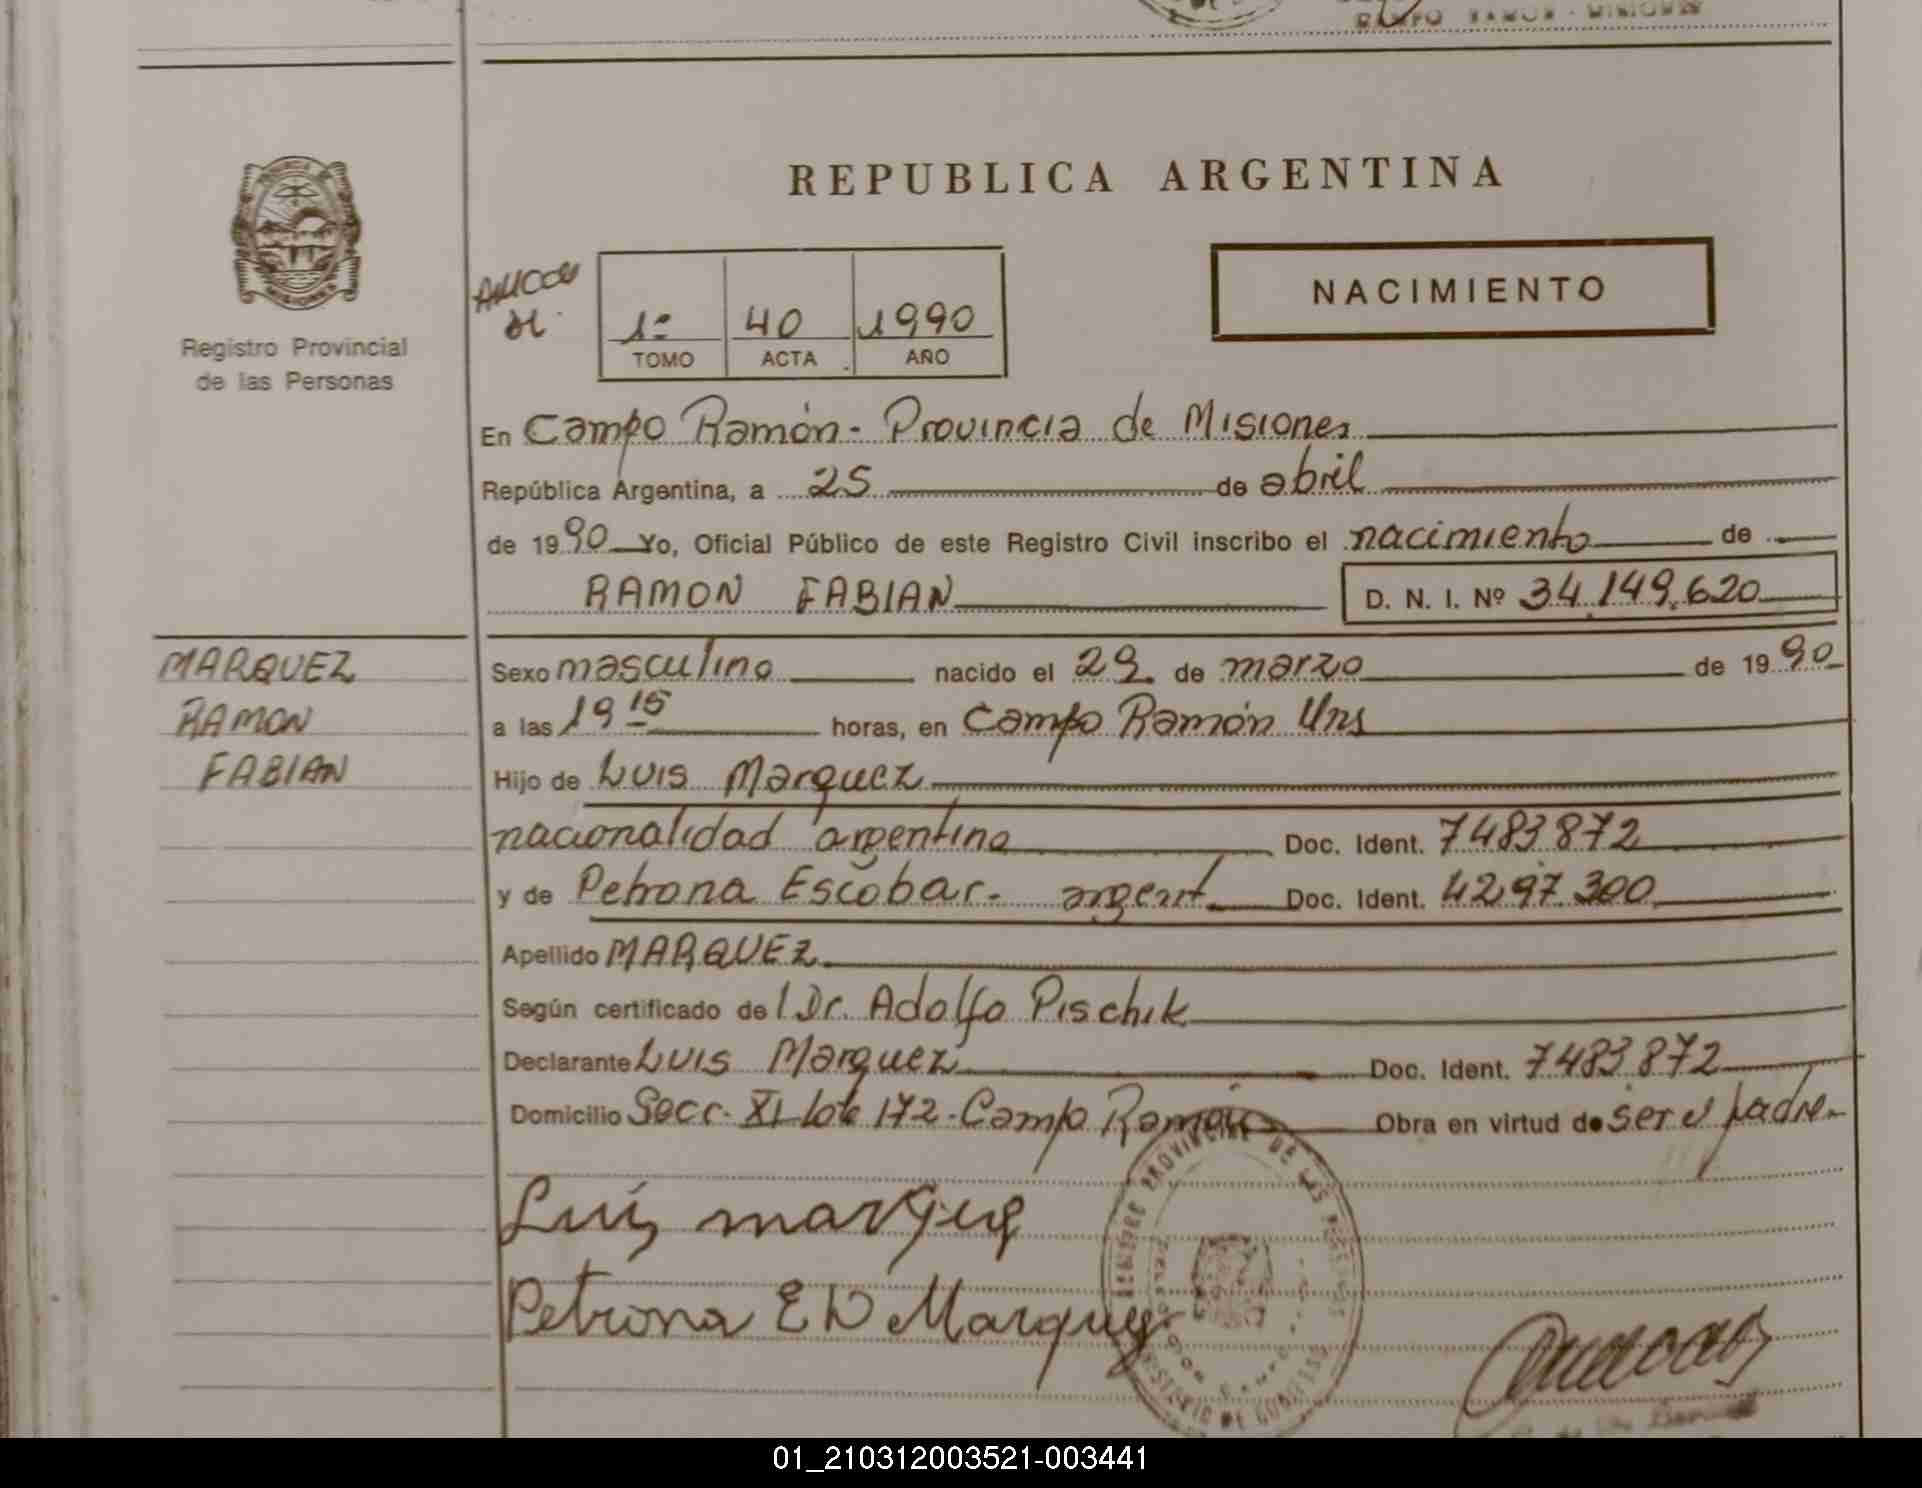 CAMPO RAMON - MISIONES
REPUBLICA ARGENTINA
NACIMIENTO
Registro Provincial
de las Personas
1º 40 1990
TOMO ACTA AÑO
En Campo Ramón - Provincia de Misiones
República Argentina, a 25 de abril
de 1990 Yo, Oficial Público de este Registro Civil inscribo el nacimiento de
RAMON FABIAN D. N. I. Nº 34.149.620
MARQUEZ
RAMON
FABIAN
Sexo masculino nacido el 29 de marzo de 1990
a las 19 15 horas, en Campo Ramón Mns
Hijo de Luis Marquez
nacionalidad argentina Doc. Ident. 7483872
y de Petrona Escobar - argent. Doc. Ident. 4297.300
Apellido MARQUEZ
Según certificado del Dr. Adolfo Pischik
Declarante Luis Marquez Doc. Ident. 7483872
Domicilio Secc. XI lote 172 - Campo Ramón Obra en virtud de ser el padre
Luis marquez
Petrona E D Marquez
REGISTRO PROVINCIAL DE LAS PERSONAS
MINISTERIO DE GOBIERNO
01_210312003521-003441